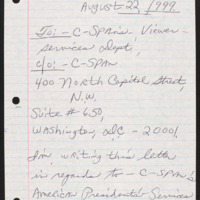 August 22, 1999
To:- C-SPAN'S, Viewer-
Services Dept,
c/o:- C-SPAN
400 North Capitol Street,
N.W,
Suite # 650,
Washington, DC - 20001.
I'm, writing this letter
in regards to - C-SPAN'S
American Presidents' Services